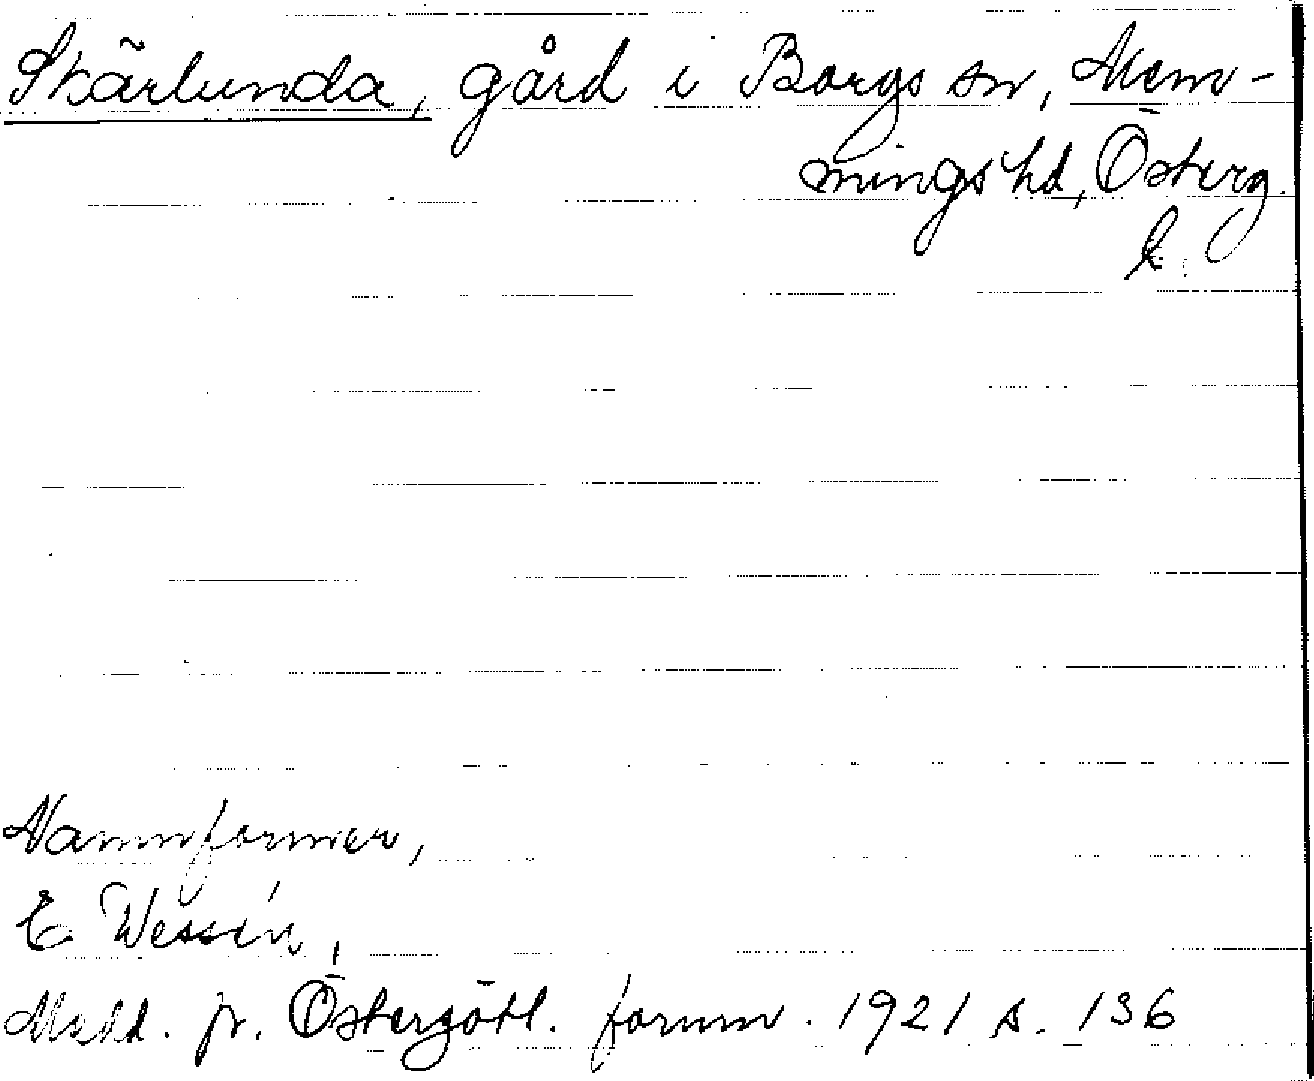 Skärlunda, gård i Borgs sn, Mem-
mings hd, Österg.
l.
Namnformer,
E. Wessén,
Medd. fr. Östergötl. fornm. 1921 s. 136